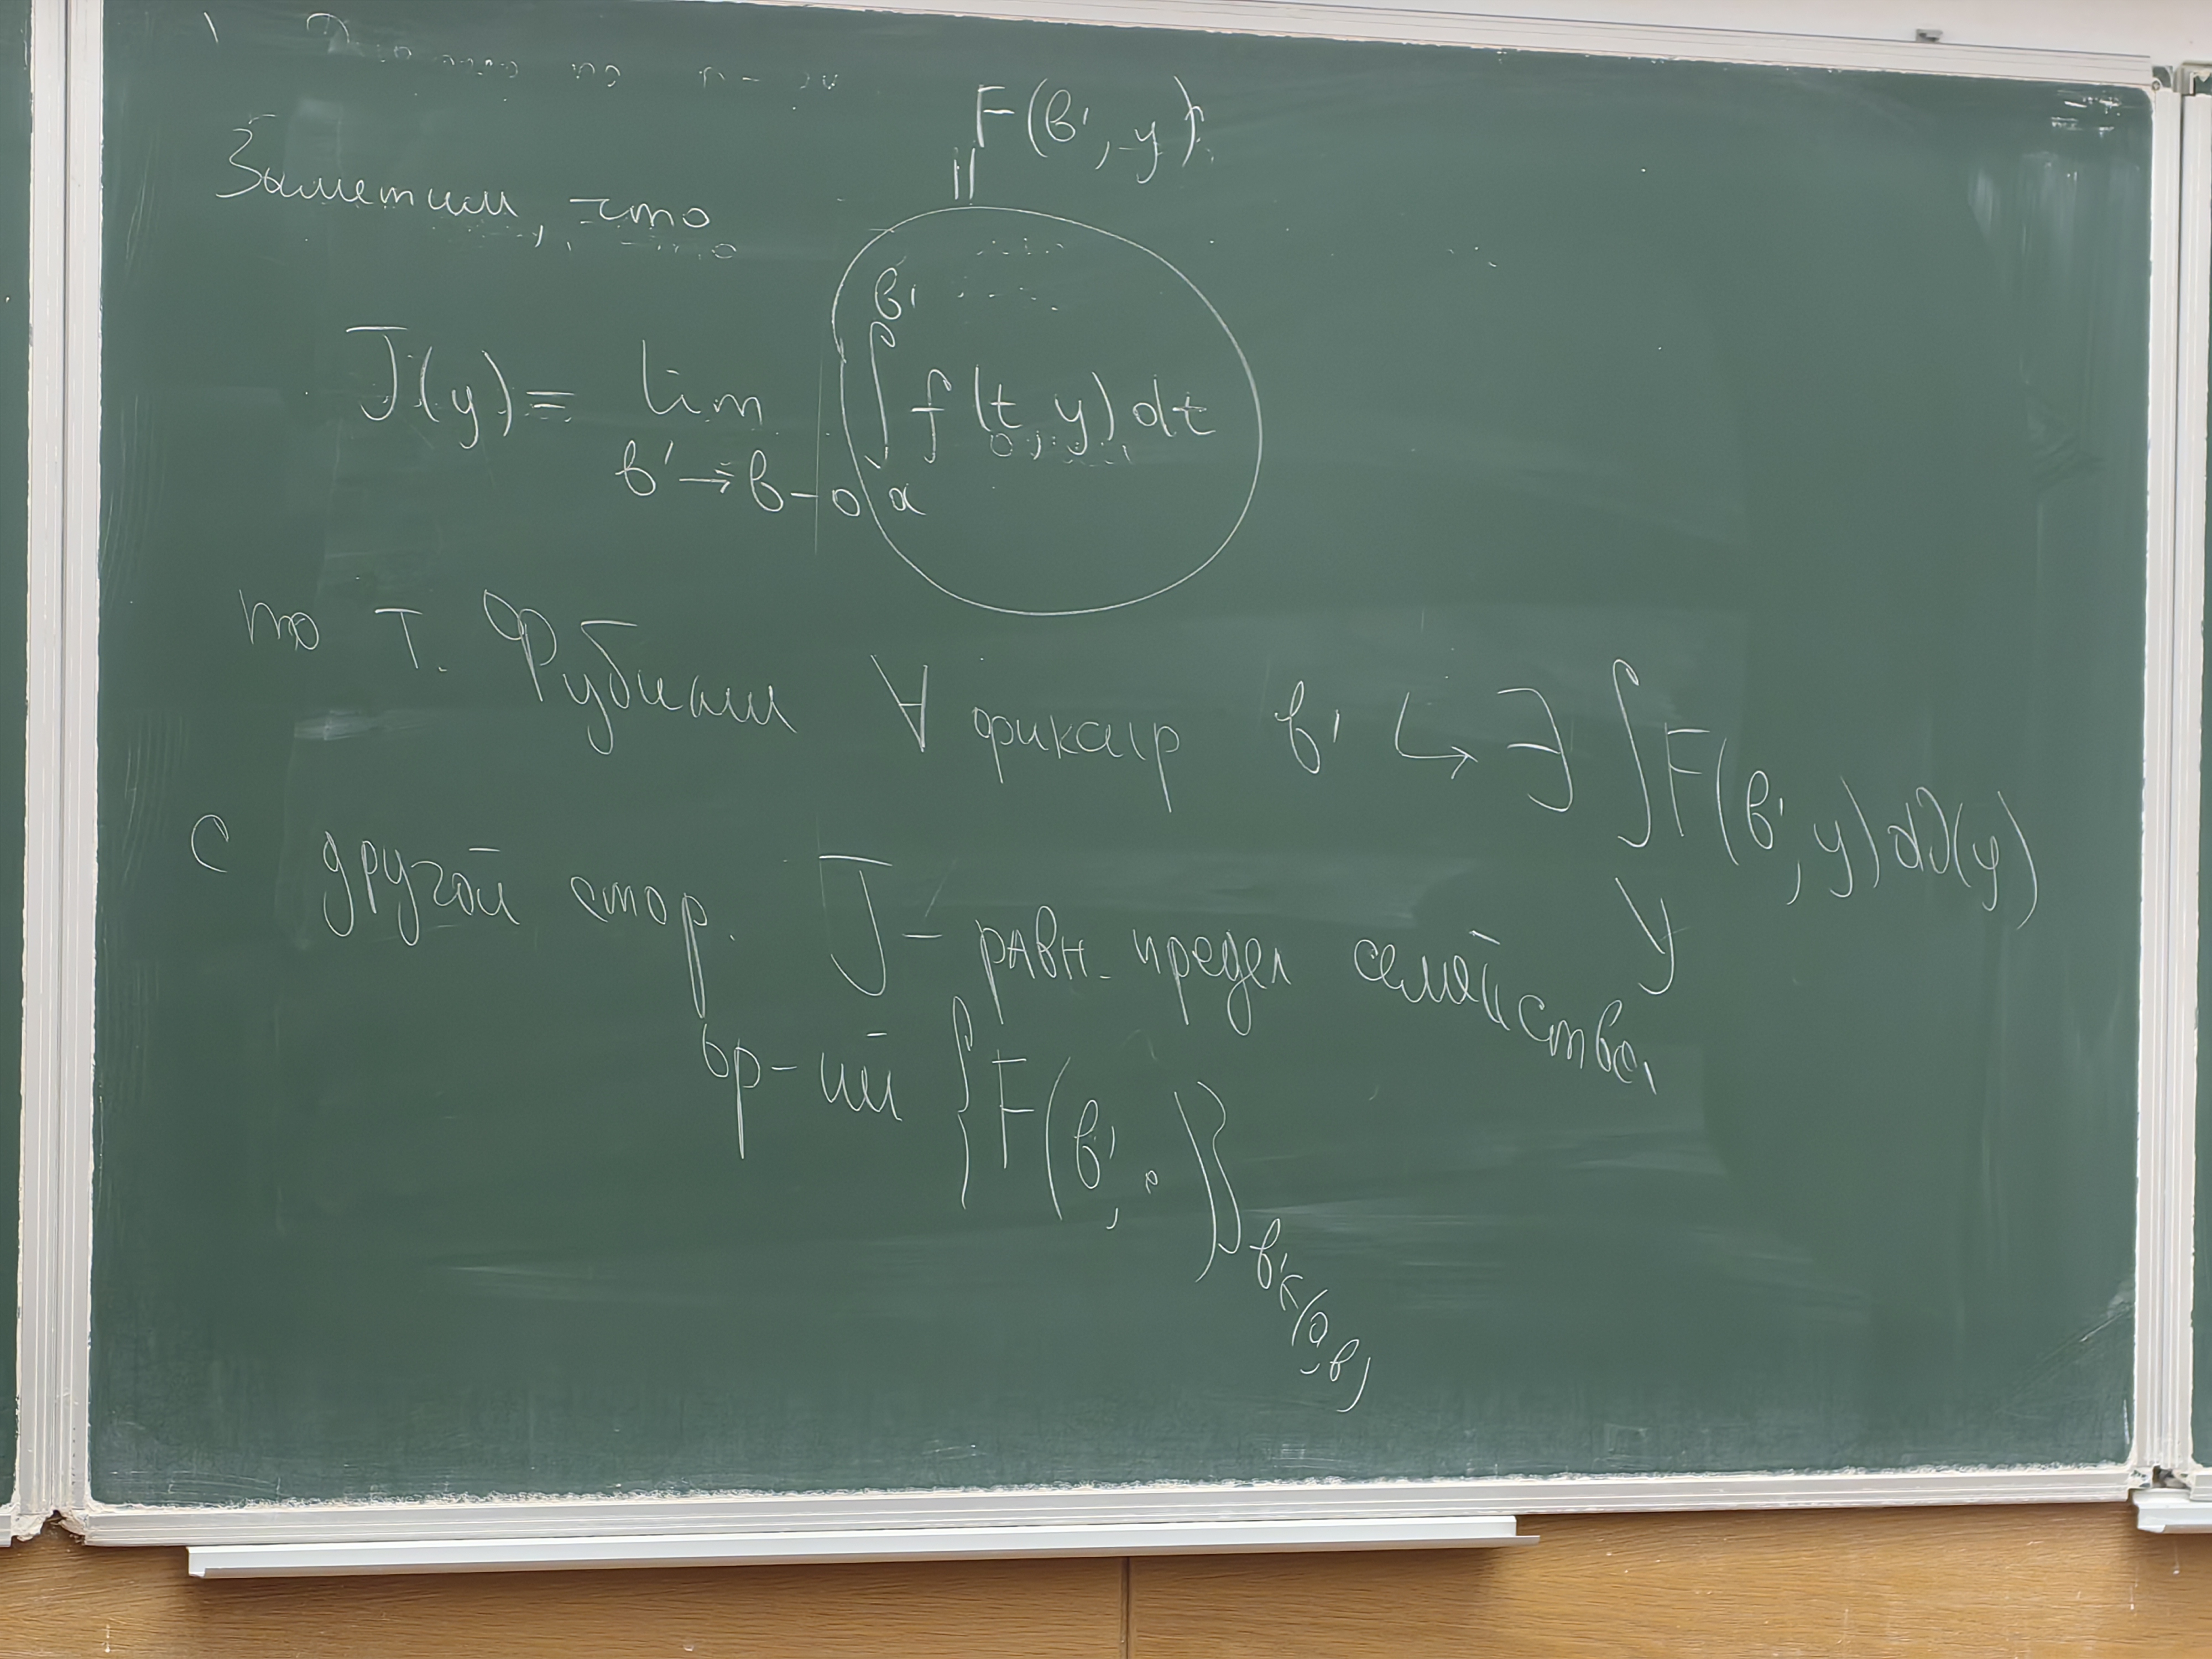 F(b', y)
||
Заметим, что
J(y) = lim_{b' → b-0} ∫_a^{b'} f(t, y) dt
по т. Фубини ∀ фиксир b' ↪ ∃ ∫_Y F(b', y) dν(y)
С другой стор. J - равн. предел семейства
ор-ций {F(b', ·)}_{b' ∈ (a, b)}